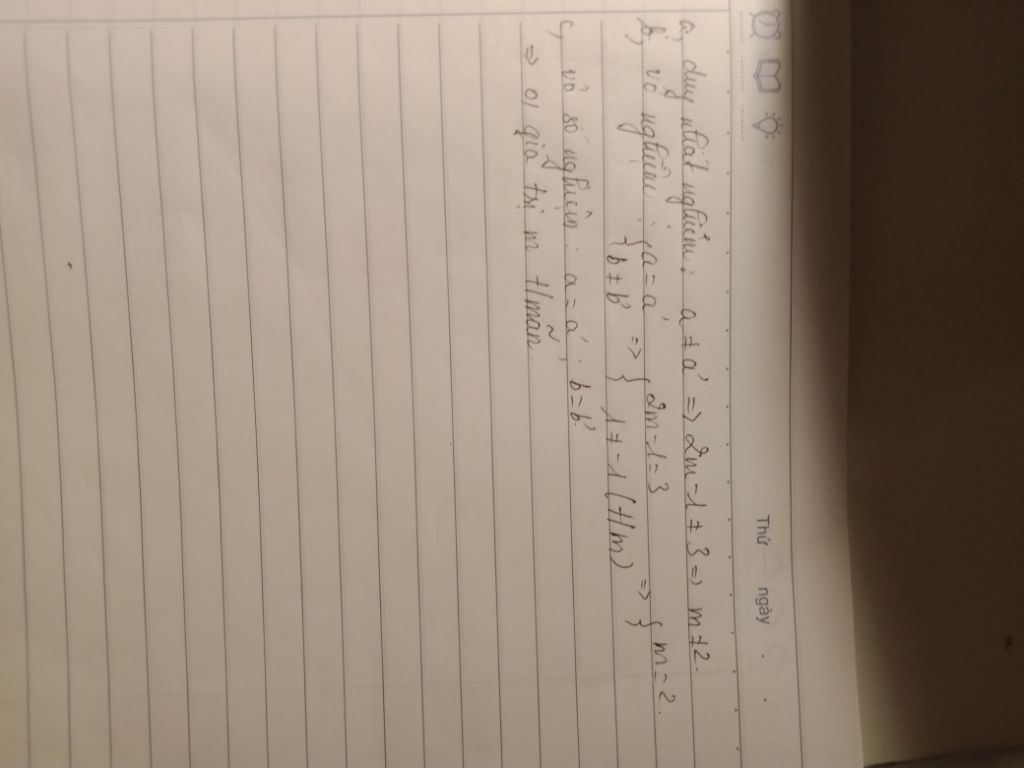 Thứ ngày
a, duy nhất nghiệm: a ≠ a' => 2m-1 ≠ 3 => m ≠ 2.
b, vô nghiệm: { a = a' => { 2m-1 = 3 => { m = 2.
{ b ≠ b' 1 ≠ -1 (t/m)
c, vô số nghiệm: a = a'; b = b'
=> 0 giá trị m t/mãn.